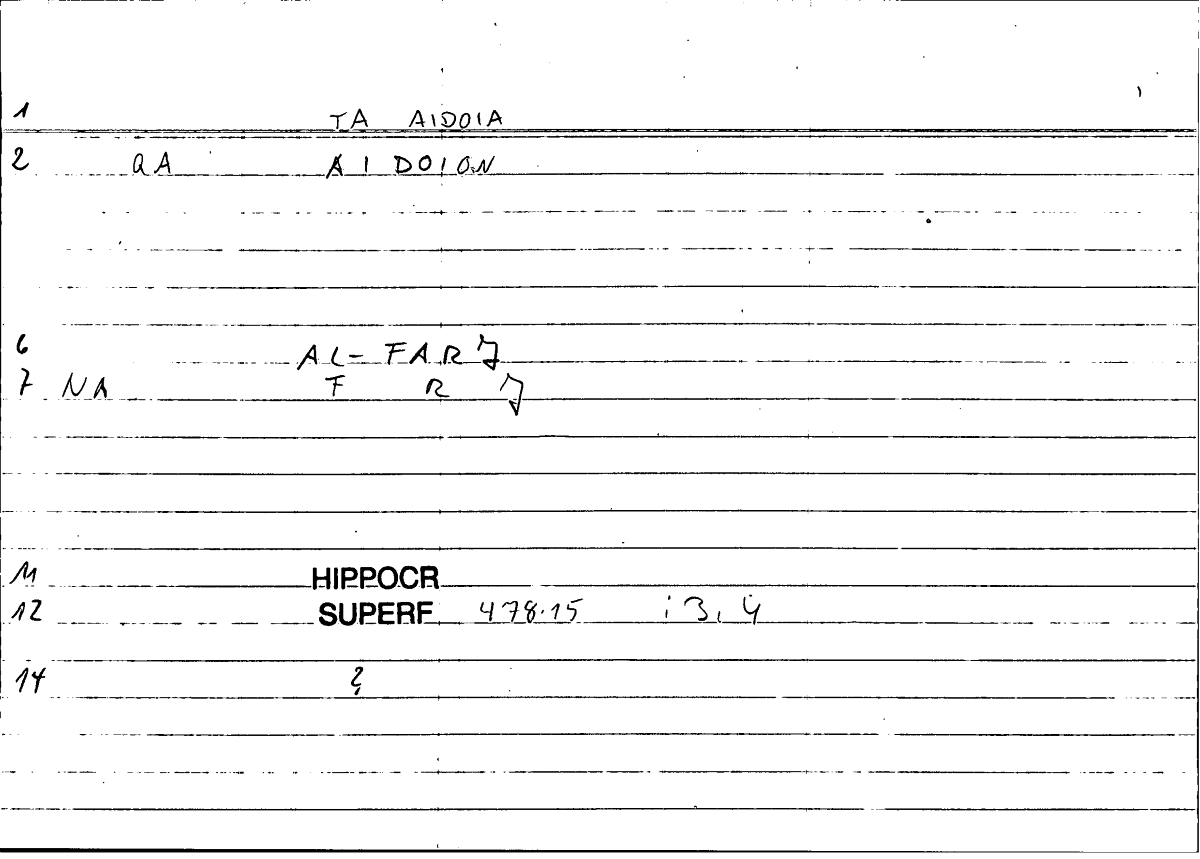 1 TA AIDOIA
2 QA AIDOION
6 AL-FARJ
7 NA F R J
11 HIPPOCR
12 SUPERF 478.15 ; 3, 4
14 ?